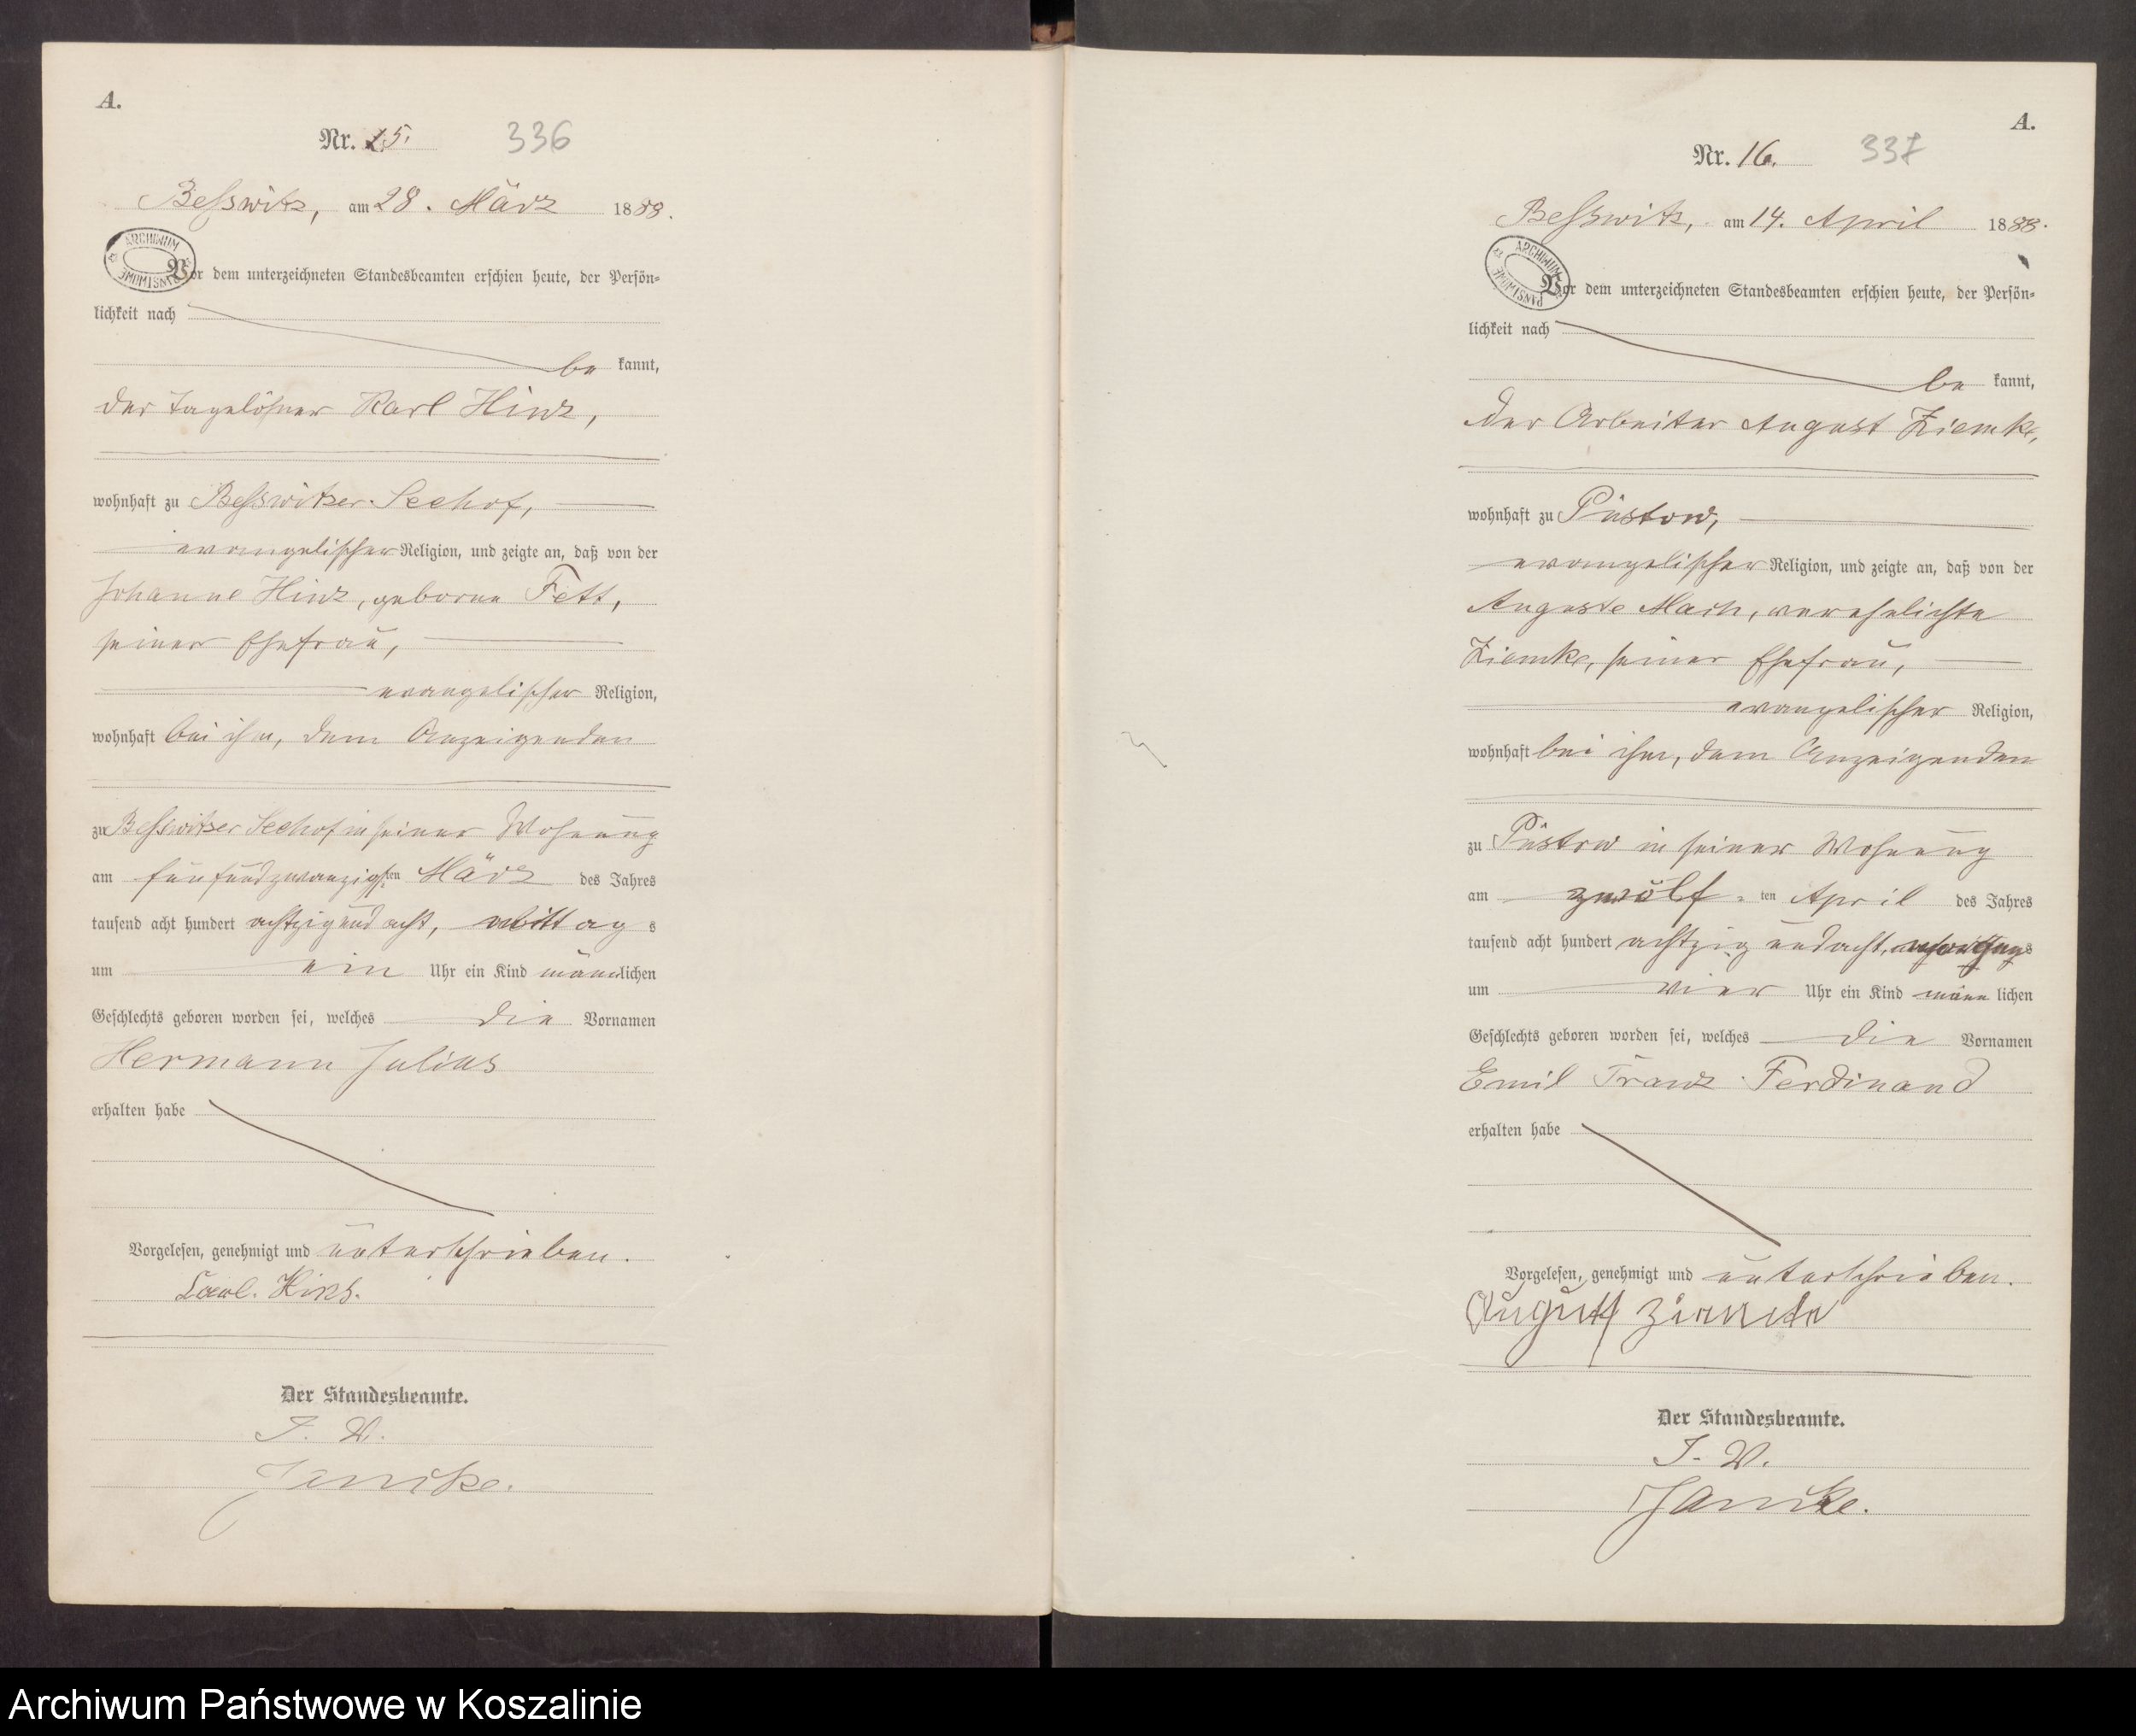 A.
Nr. 15. 336
Beßwitz, am 28. März 1888.
ARCHIWUM PAŃSTWOWE
Vor dem unterzeichneten Standesbeamten erschien heute, der Persön-
lichkeit nach
be kannt,
der Tagelöhner Karl Hinz,
wohnhaft zu Beßwitzer Seehof,
evangelischer Religion, und zeigte an, daß von der
Johanne Hinz, geborne Fett,
seiner Ehefrau,
evangelischer Religion,
wohnhaft bei ihm, dem Anzeigenden
zu Beßwitzer Seehof in seiner Wohnung
am fünfundzwanzigsten März des Jahres
tausend acht hundert achtzig und acht, Mittags
um ein Uhr ein Kind männlichen
Geschlechts geboren worden sei, welches die Vornamen
Hermann Julius
erhalten habe
Vorgelesen, genehmigt und unterschrieben.
Carl. Hinz.
Der Standesbeamte.
I. V.
Jancke.
A.
Nr. 16. 337
Beßwitz, am 14. April 1888.
ARCHIWUM PAŃSTWOWE
Vor dem unterzeichneten Standesbeamten erschien heute, der Persön-
lichkeit nach
be kannt,
der Arbeiter August Ziemke,
wohnhaft zu Püstow,
evangelischer Religion, und zeigte an, daß von der
Auguste Mach, verehelichte
Ziemke, seiner Ehefrau,
evangelischer Religion,
wohnhaft bei ihm, dem Anzeigenden
zu Püstow in seiner Wohnung
am zwölf-ten April des Jahres
tausend acht hundert achtzig und acht, morgens
um vier Uhr ein Kind männlichen
Geschlechts geboren worden sei, welches die Vornamen
Emil Franz Ferdinand
erhalten habe
Vorgelesen, genehmigt und unterschrieben.
August Ziemke
Der Standesbeamte.
I. V.
Jancke.
Archiwum Państwowe w Koszalinie